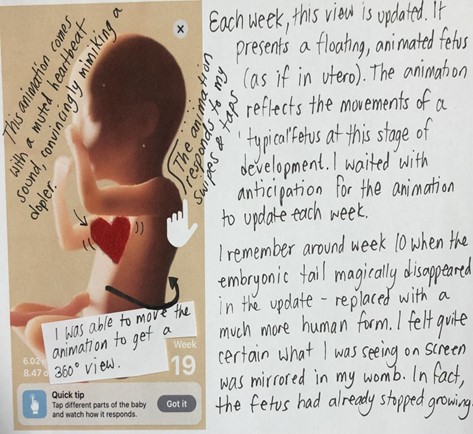 This animation comes
with a muted heartbeat
sound, convincingly mimiking a
dopler.
The animation
responds to my
swipes & taps
I was able to move the
animation to get a
360° view.
6.02
8.47 o
Week
19
Quick tip
Tap different parts of the baby
and watch how it responds.
Got it
Each week, this view is updated. It
presents a floating, animated fetus
(as if in utero). The animation
reflects the movements of a
'typical' fetus at this stage of
development. I waited with
anticipation for the animation
to update each week.
I remember around week 10 when the
embryonic tail magically disappeared
in the update - replaced with a
much more human form. I felt quite
certain what I was seeing on screen
was mirrored in my womb. In fact,
the fetus had already stopped growing.